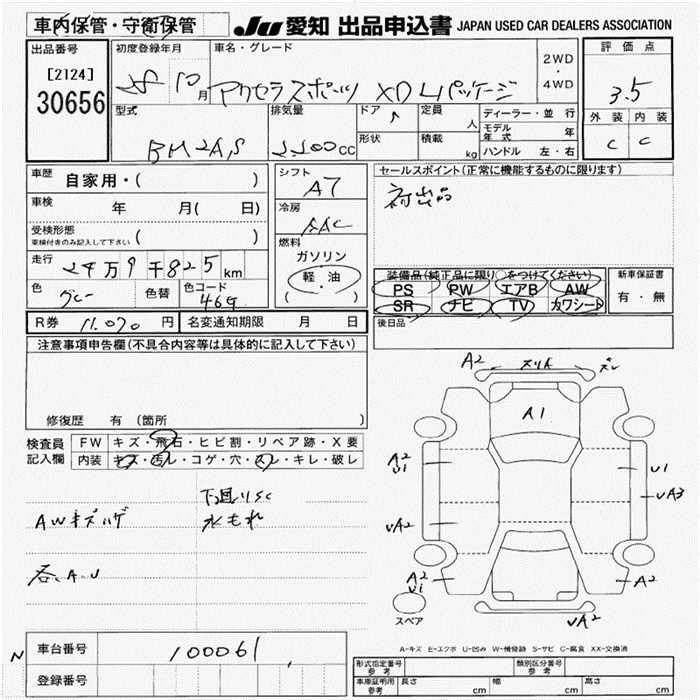 車内保管・守衛保管
JU 愛知 出品申込書 JAPAN USED CAR DEALERS ASSOCIATION
出品番号
[2124]
30656
初度登録年月
28 10月
車名・グレード
アクセラスポーツ XD Lパッケージ
2WD
・
4WD
評価点
3.5
外装 内装
C C
型式
BM2AS
排気量
2200cc
ドア
形状
定員
人
積載
kg
ディーラー・並行
モデル年式 年
ハンドル 左・右
車歴
自家用・( )
車検
年 月( 日)
受検形態
車検付きのみ記入して下さい ( )
走行
24万9千825km
色
グレー
色替
色コード
46G
シフト
A7
冷房
AAC
燃料
ガソリン
軽・油
( )
セールスポイント(正常に機能するものに限ります)
初出品
装備品(純正品に限り○をつけてください)
PS PW エアB AW
SR ナビ TV カワシート
新車保証書
有・無
後日品
R券 11,070円
名変通知期限 月 日
注意事項申告欄(不具合内容等は具体的に記入して下さい)
修復歴 有 (箇所 )
検査員記入欄
FW キズ・飛石・ヒビ割・リペア跡・X要
内装 キズ・汚レ・コゲ・穴・スレ・キレ・破レ
下回りSC
AWキズハゲ
水もれ
各A.U
A2 スリA ズレ
A1
A2
U1
U1
UA3
UA2
A2
U1
A2
UA2
スペア
A-キズ E-エクボ U-凹み W-補修跡 S-サビ C-腐食 XX-交換済
N
車台番号 100061
登録番号
形式指定番号 参考
類別区分番号 参考
車庫証明用 参考
長さ cm
幅 cm
高さ cm